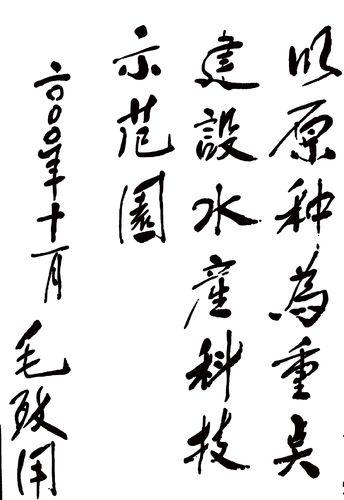 以原种為重奌
建設水產科技
示范園
二〇〇〇年十一月
毛致用